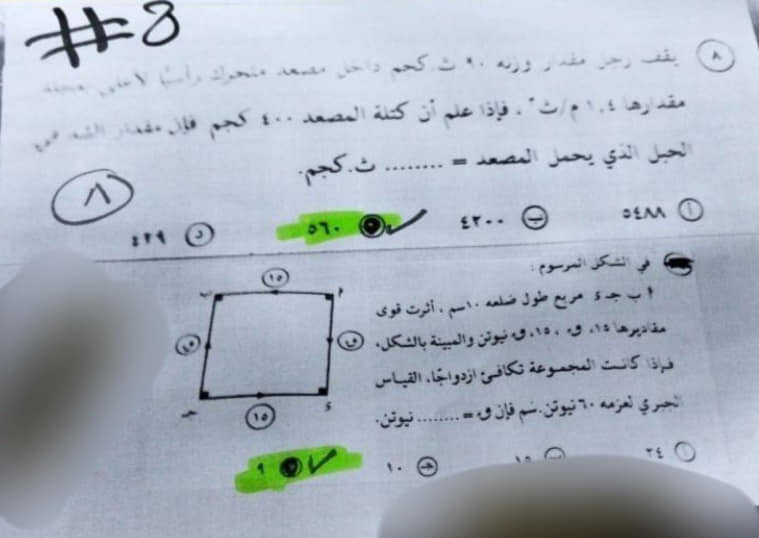 #8
٨ يقف رجل مقدار وزنه ٩٠ ث.كجم داخل مصعد متحرك رأسيًا لأعلى بعجلة
مقدارها ١.٤ م/ث٢ ، فإذا علم أن كتلة المصعد ٤٠٠ كجم فإن مقدار الشد في
الحبل الذي يحمل المصعد = ........ ث.كجم.
٨
أ ٥٤٨٨ ب ٤٢٠٠ ٥٦٠ د ٤٢٩
في الشكل المرسوم :
أ ب جـ ء مربع طول ضلعه ١٠سم ، أثرت قوى
مقاديرها ١٥، ق، ١٥، ق نيوتن والمبينة بالشكل،
فإذا كانت المجموعة تكافئ ازدواجًا، القياس
الجبري لعزمه ٦٠ نيوتن.سم فإن ق = ........ نيوتن.
ب ١٥ أ
ق ق
جـ ١٥ ء
أ ٢٤ ب ١٥ جـ ١٠ ٩